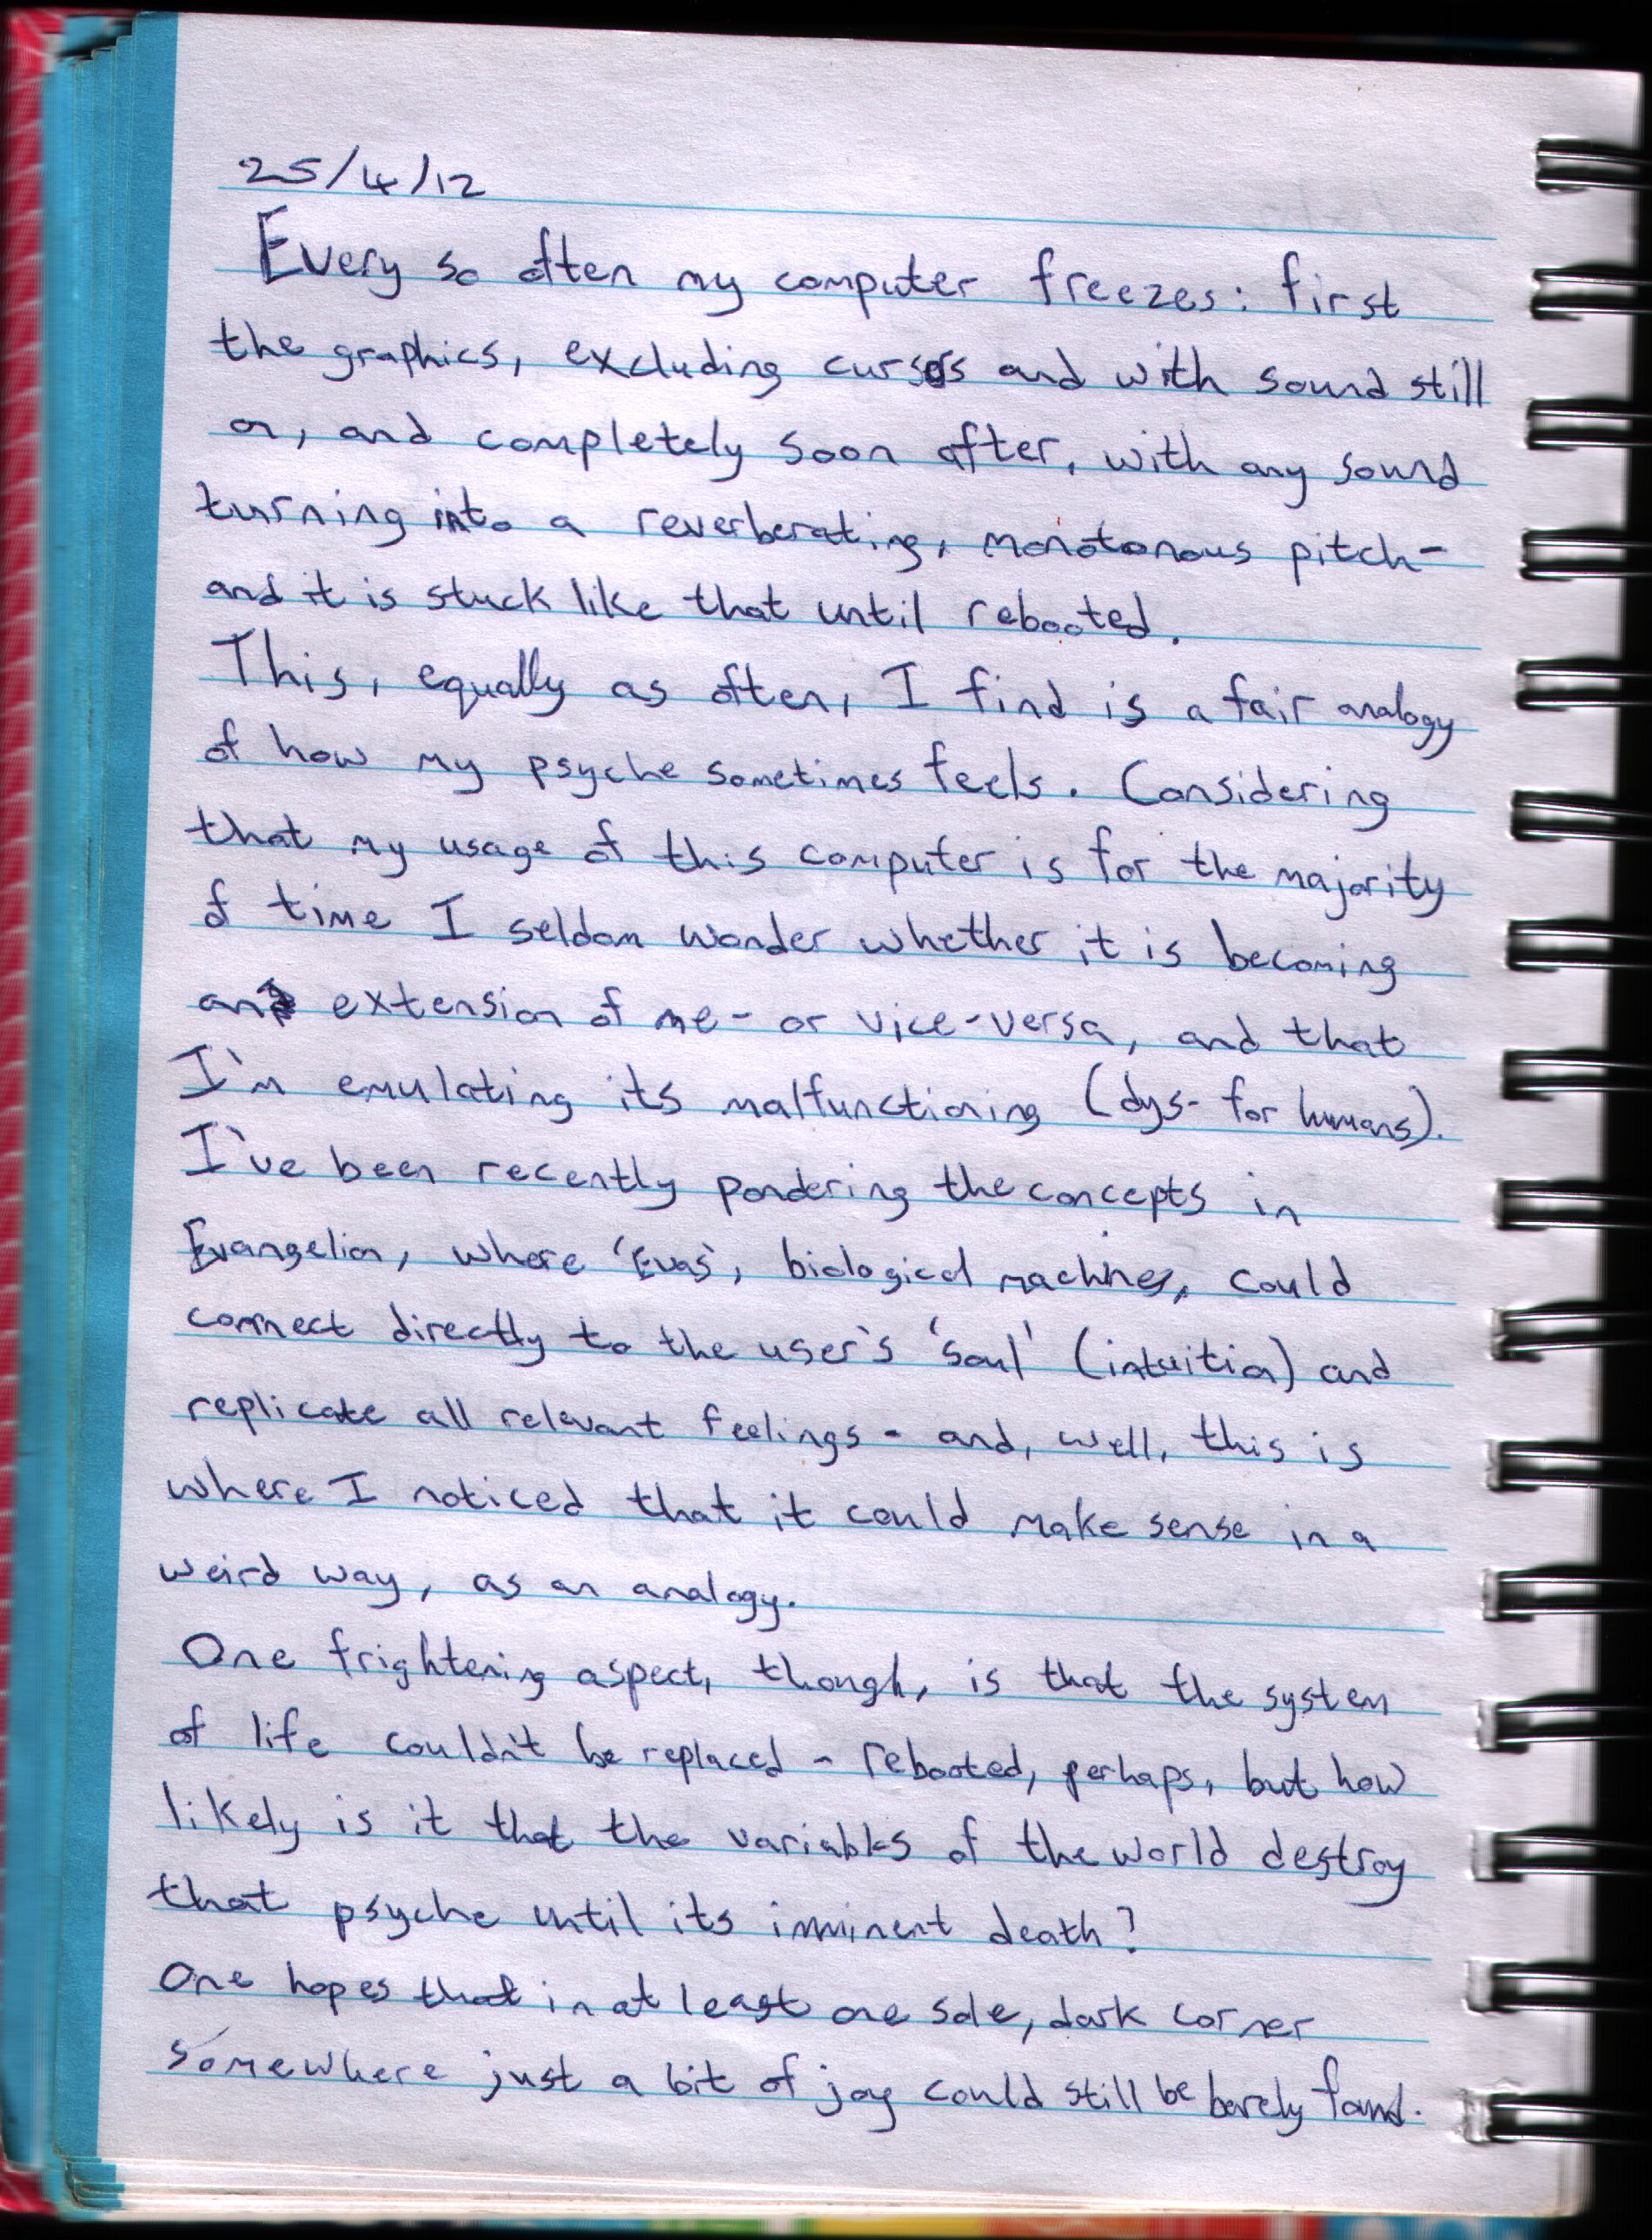 25/4/12
Every so often my computer freezes: first
the graphics, excluding cursors and with sound still
on, and completely soon after, with any sound
turning into a reverberating, monotonous pitch-
and it is stuck like that until rebooted.
This, equally as often, I find is a fair analogy
of how my psyche sometimes feels. Considering
that my usage of this computer is for the majority
of time I seldom wonder whether it is becoming
an extension of me - or vice-versa, and that
I'm emulating its malfunctioning (dys- for humans).
I've been recently pondering the concepts in
Evangelion, where 'Evas', biological machines, could
connect directly to the user's 'soul' (intuition) and
replicate all relevant feelings - and, well, this is
where I noticed that it could make sense in a
weird way, as an analogy.
One frightening aspect, though, is that the system
of life couldn't be replaced - rebooted, perhaps, but how
likely is it that the variables of the world destroy
that psyche until its imminent death?
One hopes that in at least one sole, dark corner
somewhere just a bit of joy could still be barely found.